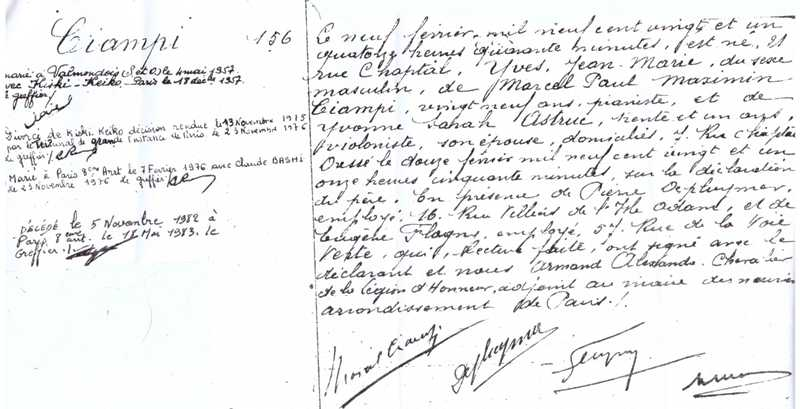 Ciampi 156
marié à Valmondois (S et O) le 4 mai 1957
avec Kishi - Keiko - Paris le 18 déc 1957
le greffier
Divorcé de Kishi Keiko décision rendue le 13 Novembre 1975
par le tribunal de grande Instance de Paris le 23 Novembre 1976
le greffier
Marié à Paris 8ème Arrt le 7 Février 1976 avec Claude BASHI
le 23 Novembre 1976 le greffier
DÉCÉDÉ le 5 Novembre 1982 à
Paris 8ème arrt. le 18 Mai 1983. le
Greffier
Le neuf février, mil neuf cent vingt et un
quatorze heures quarante minutes, est né, 21
rue Chaptal, Yves, Jean-Marie, du sexe
masculin, de Marcel Paul Maximin
Ciampi, vingt neuf ans, pianiste, et de
Yvonne Sarah Astruc, trente et un ans,
violoniste, son épouse, domiciliés, Rue Chaptal
Dressé le douze février mil neuf cent vingt et un
onze heures cinquante minutes, sur la déclaration
du père. En présence de Pierre Depluymer,
employé, 16. Rue Villiers de l'Isle Adam, et de
Eugène employé, Rue de la Voie
Verte, qui, lecture faite, ont signé avec le
déclarant et nous Armand Chevalier
de la Légion d'Honneur, adjoint au maire du neuvième
arrondissement de Paris./.